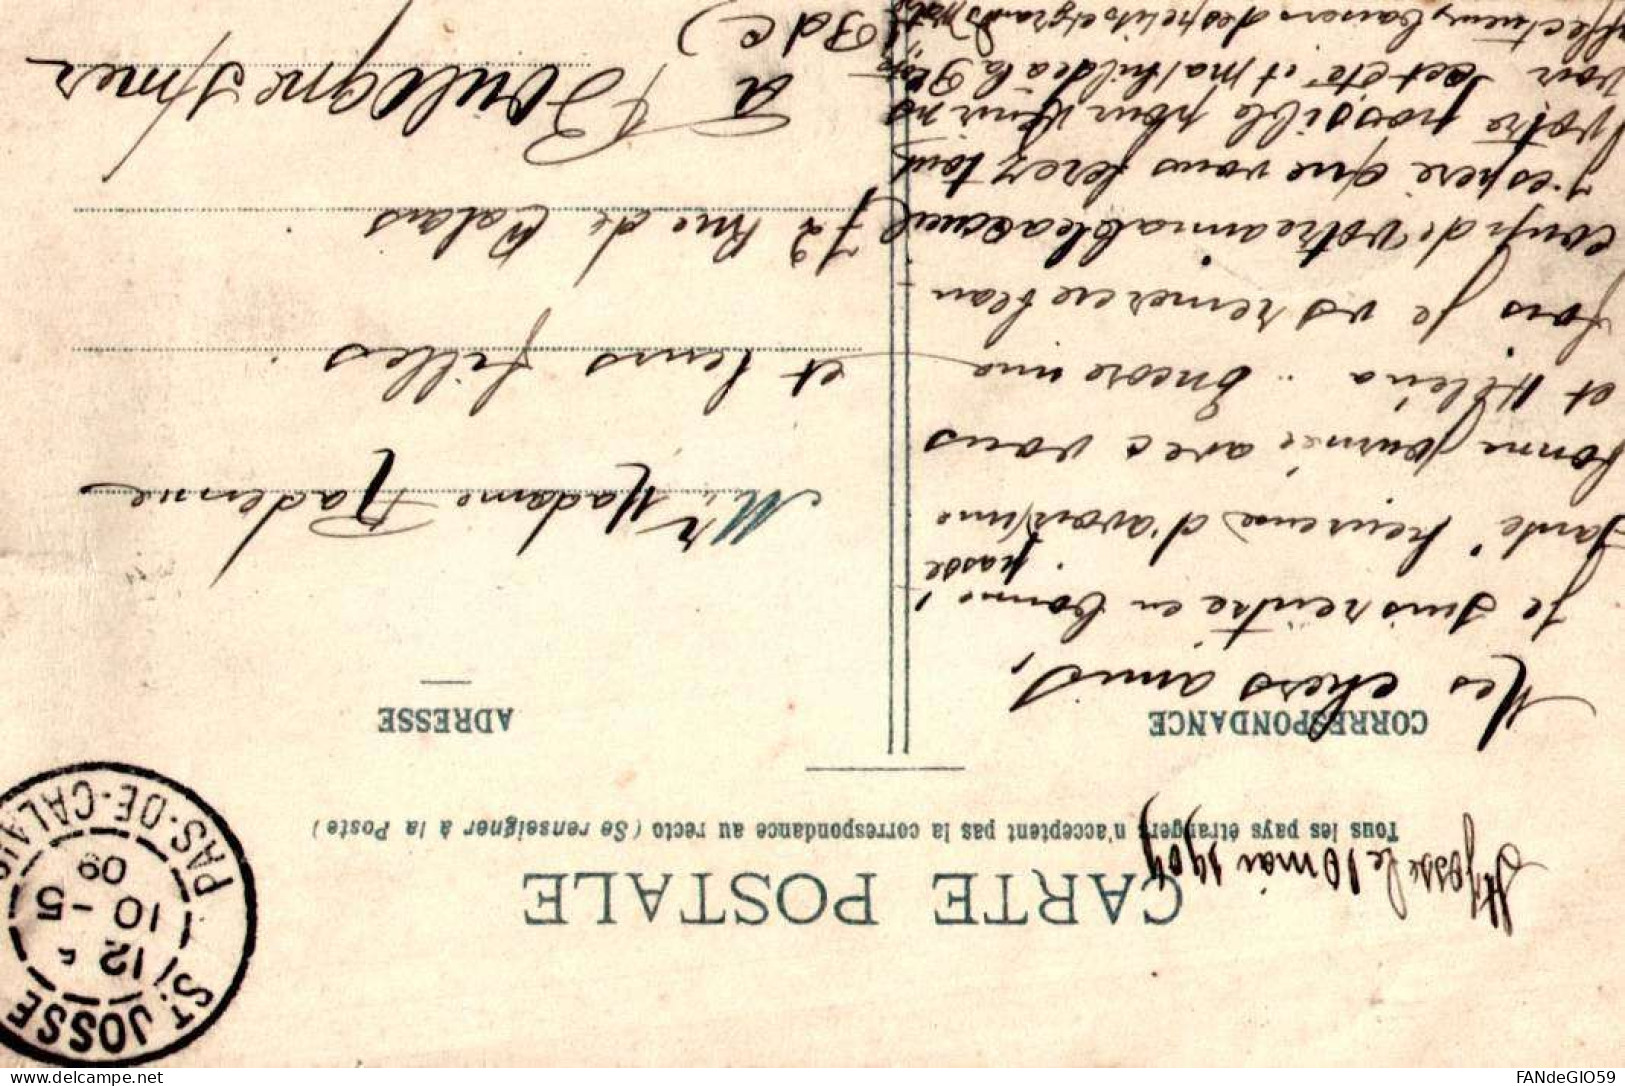 CARTE POSTALE
Tous les pays étrangers n'acceptent pas la correspondance au recto (Se renseigner à la Poste)
St Josse le 10 mai 1909
CORRESPONDANCE
Mes chers amis,
Je suis rentré en bonne
santé heureux d'avoir passé une
bonne journée avec vous
et Héléna. Encore une
fois je vs remercie beau
coup de votre aimable accueil
j'espère que vous ferez tout
votre possible pour venir ns
voir cet été et Mathilde à la
affectueux baisers des petits et grands
ADRESSE
Mr, Madame Radenne
et leurs filles
72 Rue de Calais
à Boulogne s/mer
(P de C)
ST JOSSE
12
10 - 5
09
PAS-DE-CALAIS
FANdeGIO59